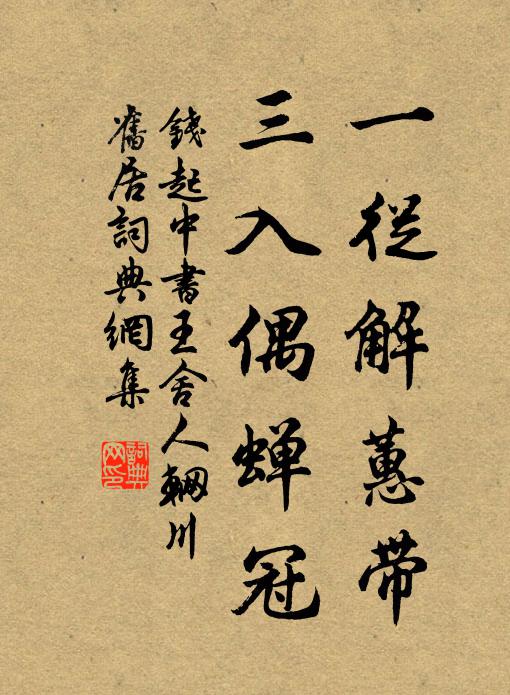 一從解蕙帶
三入偶蝉冠
錢起中書王舍人輞川
舊居詞典網集
詞典
网印